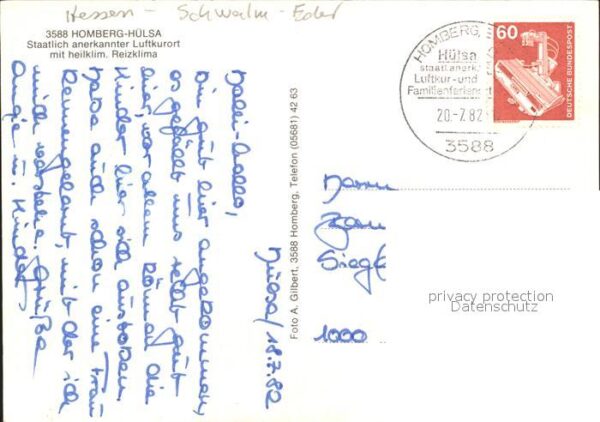 Hessen - Schwalm-Eder
3588 HOMBERG-HÜLSA
Staatlich anerkannter Luftkurort
mit heilklim. Reizklima
Hülsa/18.7.82
Hallo,
Bin gut hier angekommen,
es gefällt uns sehr gut
hier, vor allem können die
Kinder hier sich austoben.
Habe auch schon eine Frau
kennengelernt, mit der ich
mich verstehe. Grüße
Antje u. Kinder
Foto A. Gilbert, 3588 Homberg, Telefon (05681) 42 63
HOMBERG,
Hülsa
staatl anerk.
Luftkur- und
Familienferienort
20.-7.82
3588
60
DEUTSCHE BUNDESPOST
Herrn
1000
privacy protection
Datenschutz